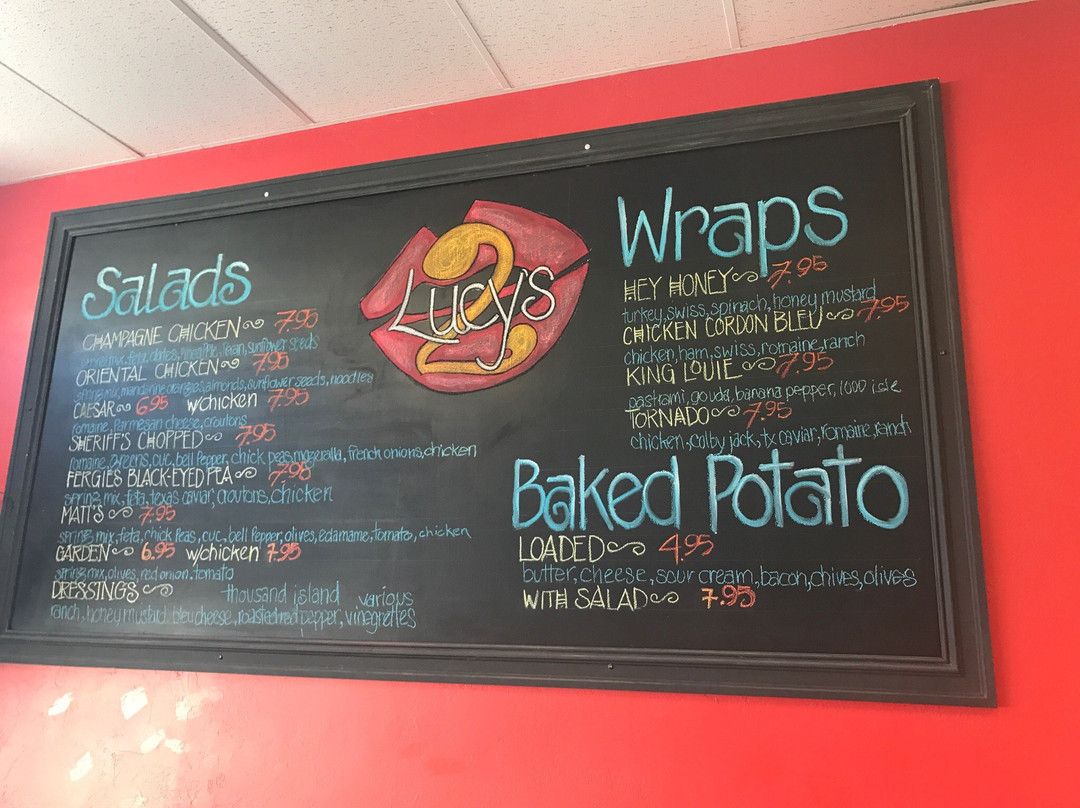 Salads
CHAMPAGNE CHICKEN 7.95
spring mix, feta, dates, sunflower seeds
ORIENTAL CHICKEN 7.95
spring mix, mandarine oranges, almonds, sunflower seeds, noodles
CAESAR 6.95 w/chicken 7.95
romaine, Parmesan cheese, croutons
SHERIFF'S CHOPPED 7.95
romaine, greens, cuc, bell Pepper, chick peas, mozzerella, french onions, chicken
FERGIE'S BLACK-EYED PEA 7.95
spring mix, feta, texas caviar, croutons, chicken
MATT'S 7.95
spring mix, feta, chick Peas, cuc, bell Pepper, olives, edamame, tomato, chicken
GARDEN 6.95 w/chicken 7.95
spring mix, olives, red onion, tomato
DRESSINGS thousand island various
ranch, honey mustard, bleu cheese, roasted red pepper, vinegrettes
2
Lucy's
Wraps
HEY HONEY 7.95
turkey, swiss, spinach, honey mustard
CHICKEN CORDON BLEU 7.95
chicken, ham, swiss, romaine, ranch
KING LOUIE 7.95
pastrami, gouda, banana pepper, 1000 isle
TORNADO 7.95
chicken, colby jack, tx caviar, romaine, ranch
Baked Potato
LOADED 4.95
butter, cheese, sour cream, bacon, chives, olives
WITH SALAD 7.95